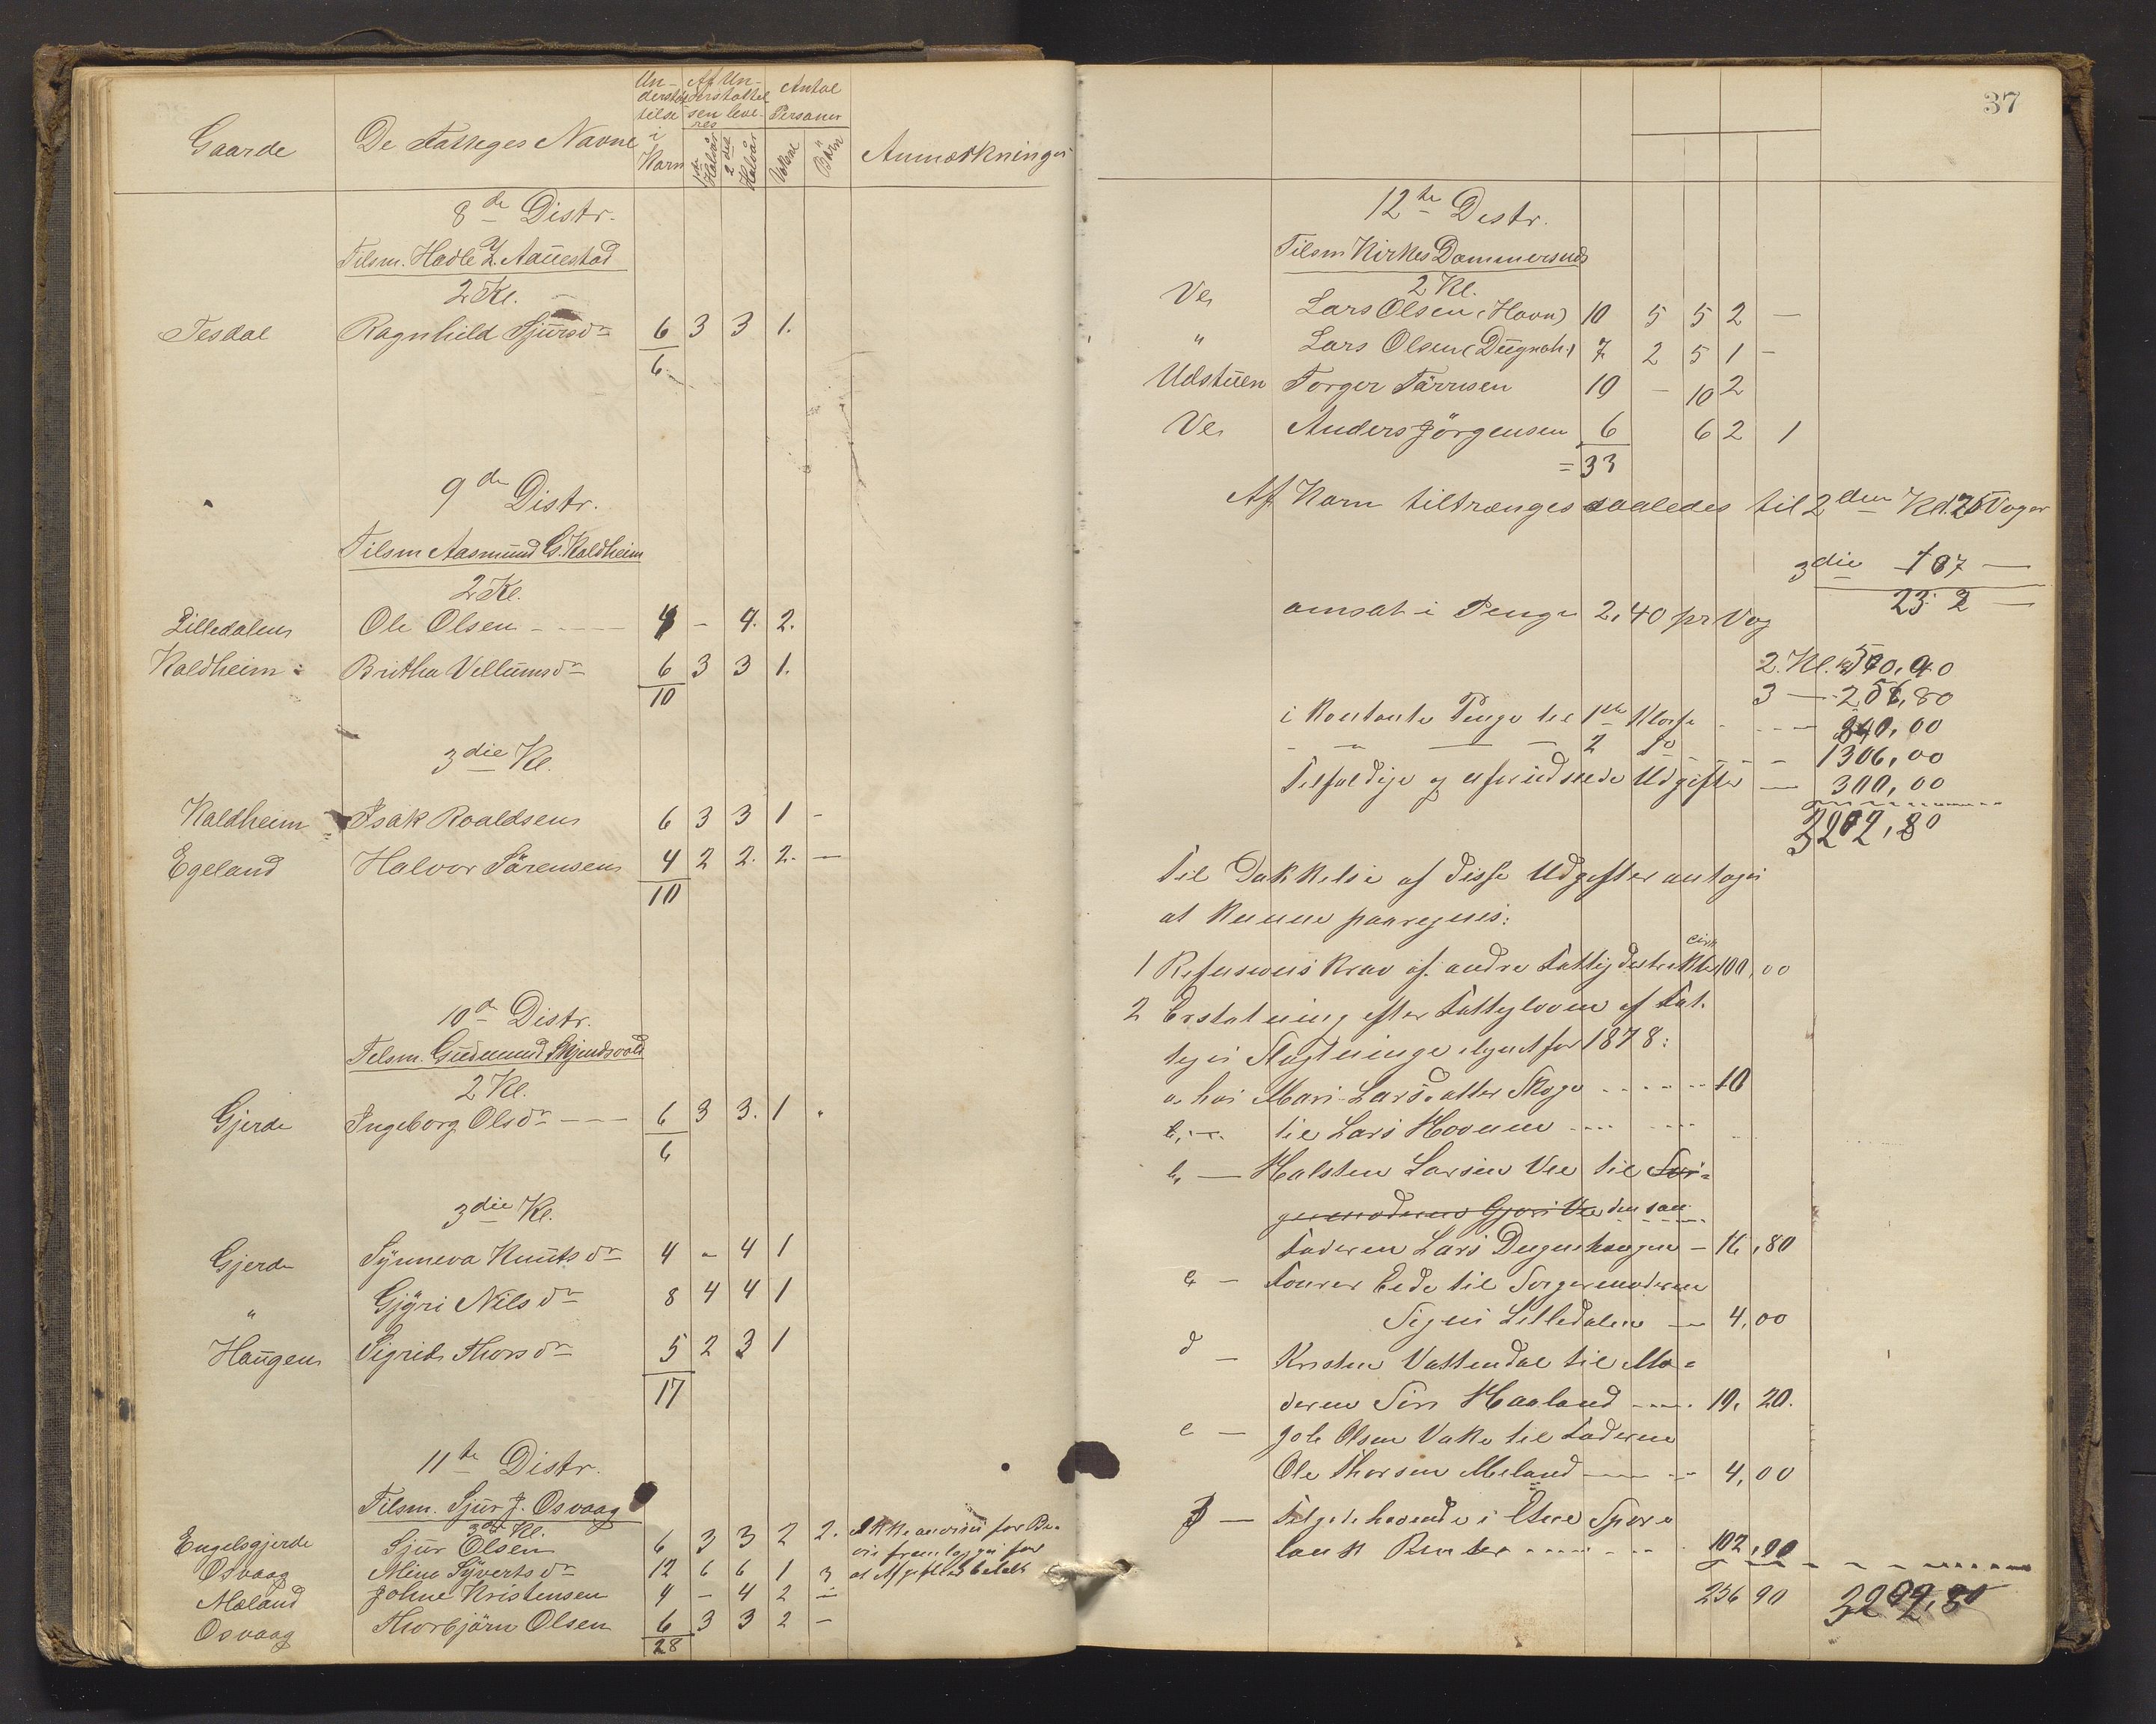 Gaarde De Fattiges Navne Understøttelse i Korn Af Understøttelsen leveres 1ste Halvår 2det Halvår Antal Personer Voksne Börn Anmærkninger
8de Distr.
Tilsm. Hadle Z. Aauestad
2 Kl.
Tesdal Ragnhild Sjursdr 6 3 3 1.
6
9de Distr.
Tilsm Aasmund G. Kaldheim
2 Kl.
Lilledalen Ole Olsen - 4 - 4. 2.
Kaldheim Britha Vellumsdr 6 3 3 1.
10
3die Kl.
Kaldheim Isak Roaldsen 6 3 3 1 -
Egeland Halvor Sörensen 4 2 2. 2. -
10
10de Distr.
Tilsm. Gudmund Skjendsvold
2 Kl.
Gjerde Ingeborg Olsdr - 6 3 3. 1
6
3die Kl.
Gjerde Synneva Knutsdr 4 - 4 1
" Gjyri Nilsdr 8 4 4 1
Haugen Sigrid Thorsdr 5 2 3 1
17
11te Distr.
Tilsm. Sjur J. Osvaag
3die Kl.
Engelsgjerde Sjur Olsen 6 3 3 2 2. Ikke anvises før Be-
vis fremlægges for
Osvaag Aline Syvertsdr 12 6 6 1 3 at Afgiften er betalt
Mæland Johne Kristensen 4 - 4 2 -
Osvaag Thorbjörn Olsen 6 3 3 2 -
28
37
12te Distr.
Tilsm Kirkes Dommersnes
2 Kl.
Ve Lars Olsen (Hovn) 10 5 5 2 -
" Lars Olsen (Dugnah.) 7 2 5 1 -
Udstuen Torger Tärrisen 10 - 10 2
Ve Anders Jörgensen 6 6 2 1
= 33
Af Korn tiltrænges saaledes til 2den Kl. Voger
3die 107 -
232 -
omsat i Penge 2,40 pr Vog
2. Kl. 
3 - 256,80
i kontante Penge til 1ste Klasse - 840,00
- - - 2 do - 1306,00
Tilfældige og uforudseede Udgifter - 300,00
3202,80
Til Dækkelse af disse Udgifter antages
at kunne paaregnes:
1 Refusionskrav af andre Fattigdistrikter cirka 100,00
2 Erstatning efter Fattigloven af Fat-
tiges Slægtninge ilignet for 1878:
a, hos Mari Larsdatter Skoge - 10
b, - til Lars Hovnen
b, - Halsten Larsen Vee til Svi-
germoderen Gjori Vee den san.
Faderen Lars Dugnehaugen - 16,80
c - Tonnes Eide til Svigermoderen
Signi Lilledalen - 4,00
d - Kristen Vattendal til Mo-
deren Siri Haaland - 19,20.
e - Johs Olsen Vake til Faderen
Ole Thorsen Meland - 4,00
3 - Tilgodehavende i Etne Spare-
bank Renter - 102,90
256 90 3202,80